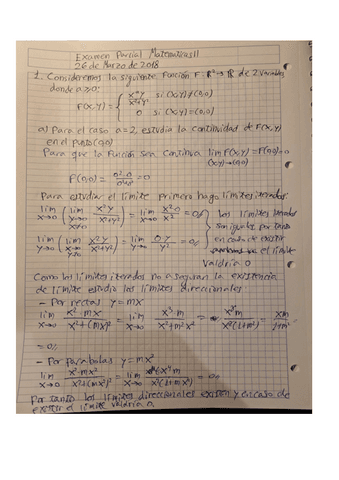 Examen Parcial Matematicas II
26 de Marzo de 2018
1. Consideremos la siguiente función F: R²→R de 2 variables
donde a≥0:
F(x,y) = { x^a y / x²+y² si (x,y)≠(0,0)
0 si (x,y)=(0,0)
a) Para el caso a=2, estudia la continuidad de F(x,y)
en el punto (0,0)
Para que la función sea continua lim F(x,y)=F(0,0)=0
(x,y)→(0,0)
F(0,0) = 0²·0 / 0²+0² = 0
Para estudiar el límite primero hago límites iterados:
lim x→0 ( lim y→0 x²y / x²+y² ) = lim x→0 x²·0 / x² = 0
lim y→0 ( lim x→0 x²y / x²+y² ) = lim y→0 0·y / y² = 0
los límites iterados
son iguales por tanto
en caso de existir
el límite
valdría 0
Como los límites iterados no aseguran la existencia
de límite estudio los límites direccionales:
- Por rectas y=mx
lim x→0 x²·mx / x²+(mx)² = lim x→0 x³·m / x²+m²x² = x³m / x²(1+m²) = xm / 1+m²
= 0
- Por parábolas y=mx²
lim x→0 x²·mx² / x²+(mx²)² = lim x→0 x⁴m / = 0
Por tanto los límites direccionales existen y en caso de
existir el límite valdría 0